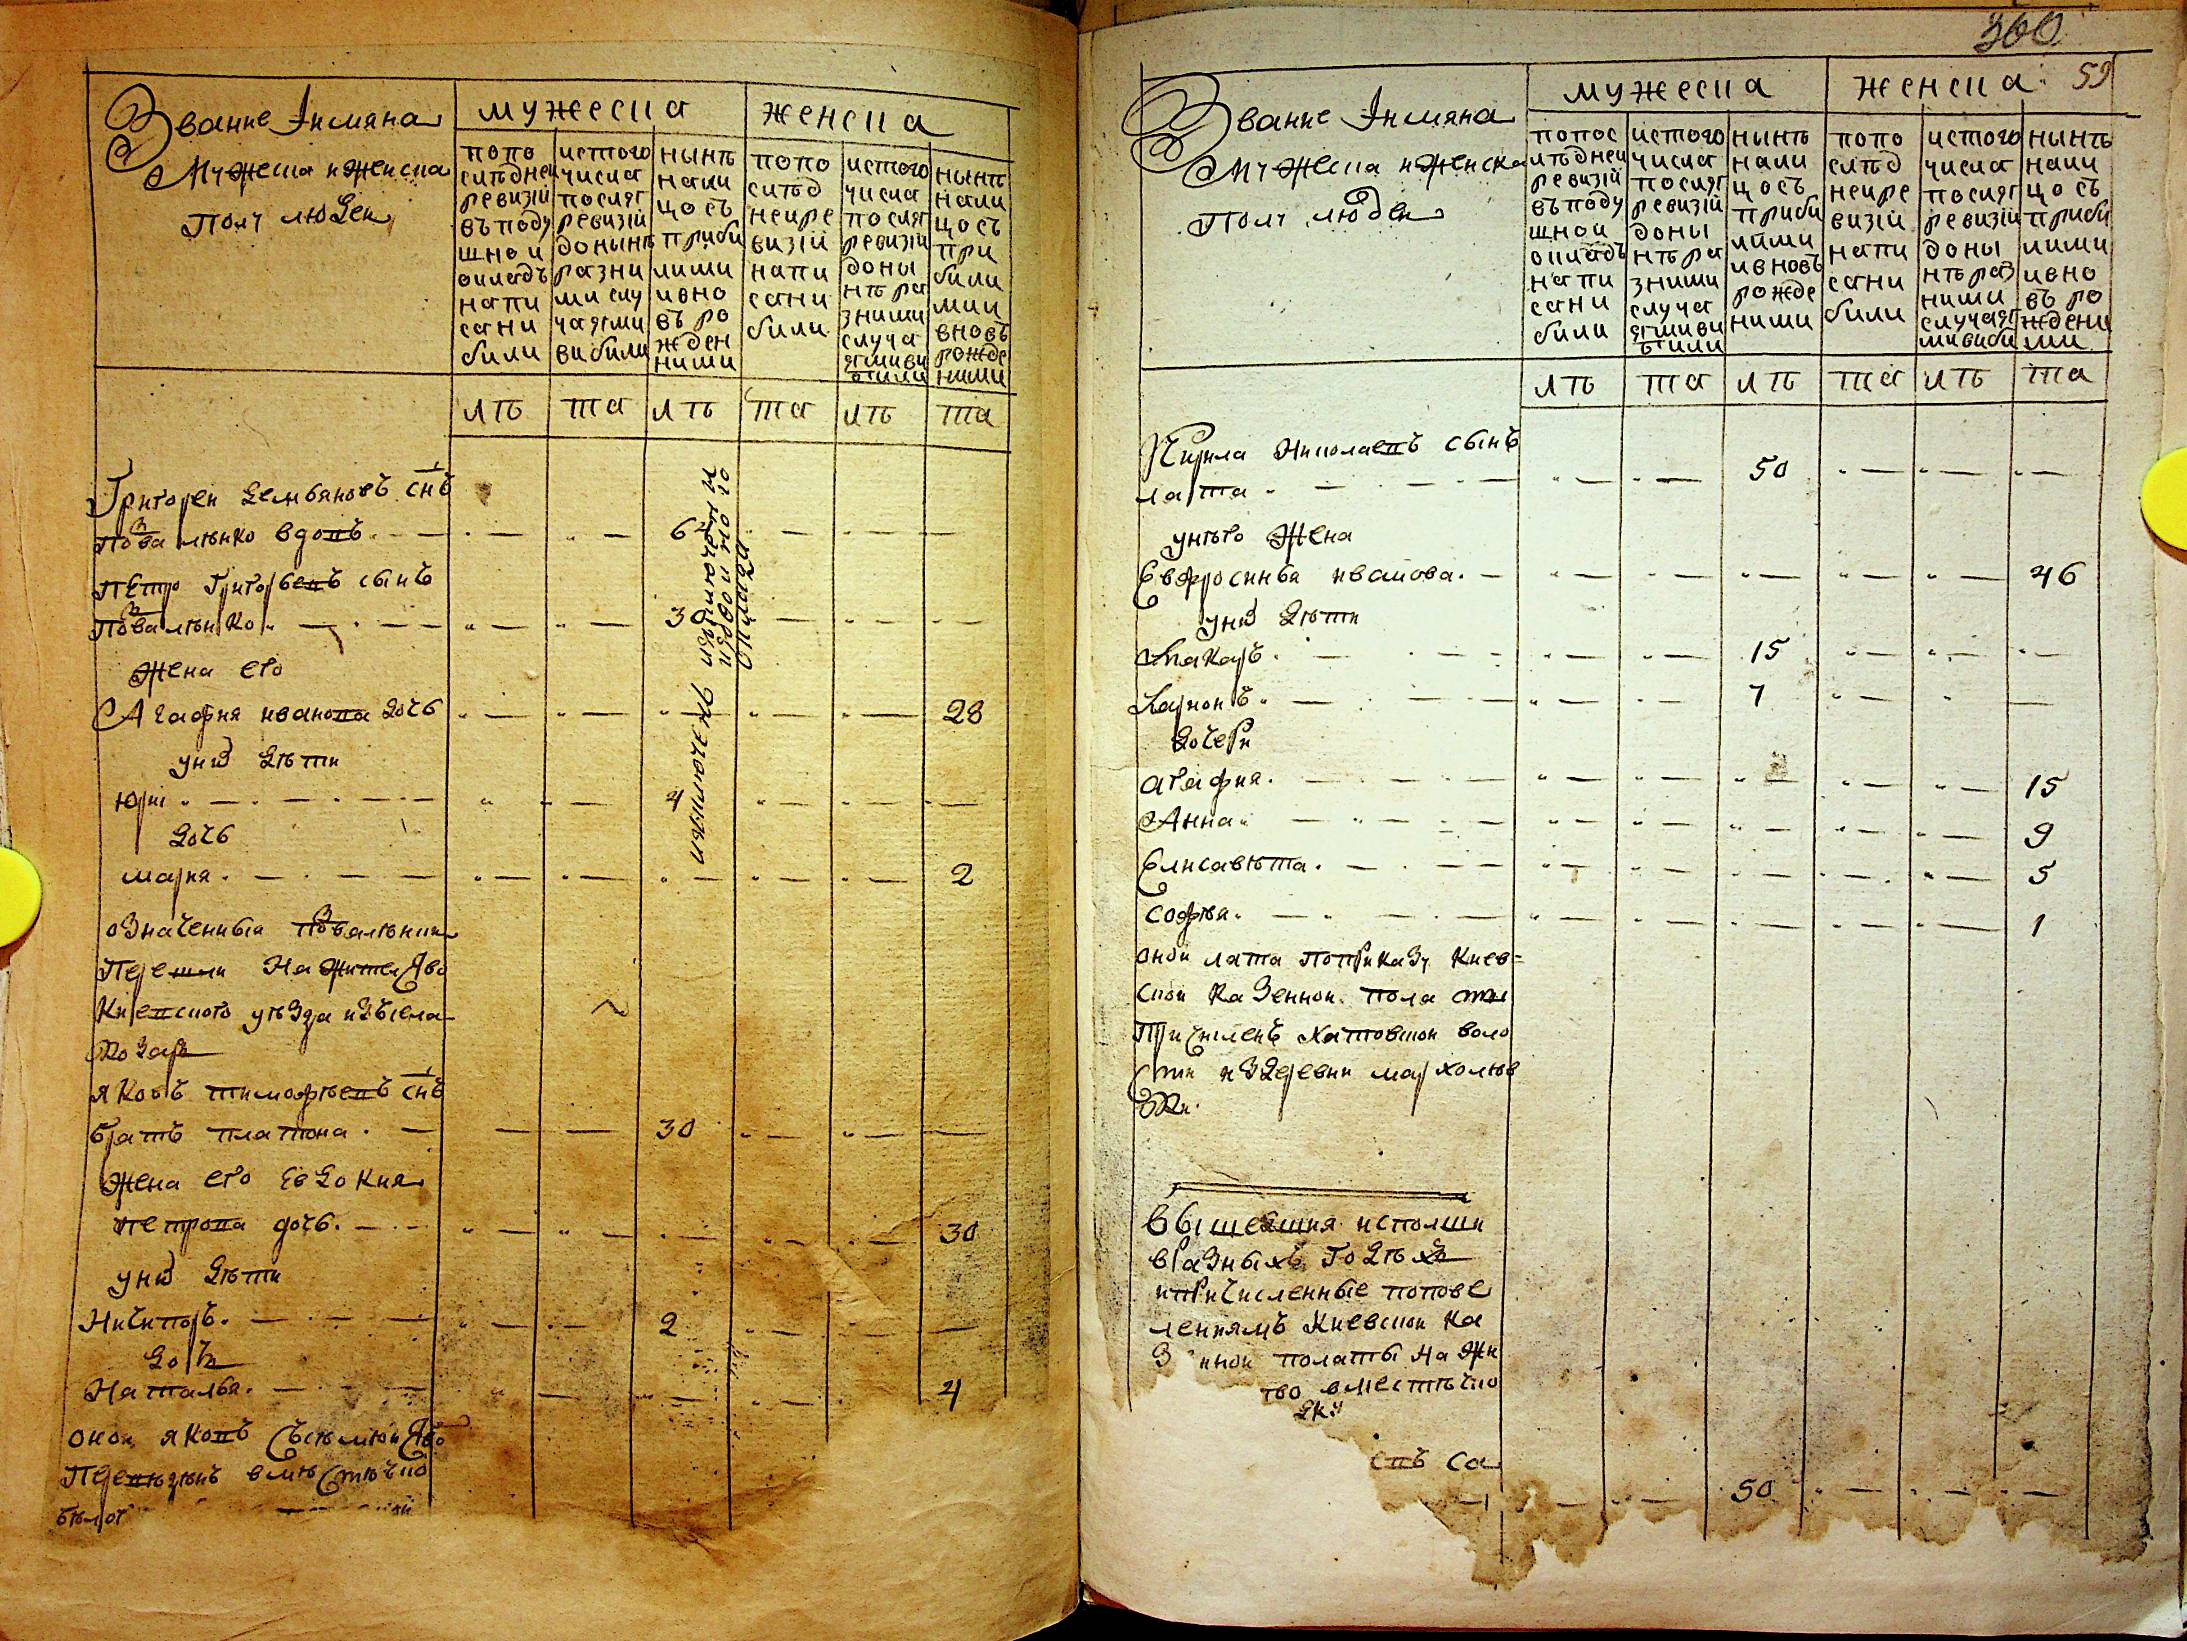 Звание Іимяна
Мужеска иженска
Полу людеи
мужеска
женска
попо
слѣдней
ревизіи
въподу
шнои
окладъ
напи
сани
били
истого
числа
послѣ
ревизіи
донынѣ
разни
ми слу
чаями
вибили
нынѣ
нали
цосъ
приби
лими
ивно
въ ро
жден
ними
попо
слѣд
неире
визіи
напи
сани
били
истого
числа
послѣ
ревизіи
доны
нѣ ра
зними
случа
ямиви
били
нынѣ
нали
цосъ
при
били
мии
вновъ
рожде
ними
лѣ та лѣ та лѣ та
Григореи Демьяновъ снъ
вдовъ 6
Петро Григорьевъ сынъ
30
жена его
Агафия иванова дочь 28
униз дѣти
Юри 4
дочь
мария 2
означенныи
Перешли Нажител
Киевского уѣзда
Козар
яковъ тимофѣевъ снъ
братъ платона 30
Жена его Евдокия
петрова дочь 30
униз дѣти
Ничипоръ 2
дочь
Наталья 4
онои яковъ
вмѣстѣчко
изключенни
300
59
Звание Іимяна
Мужеска иженска
Полу людеи
мужеска
женска
попос
лѣднеи
ревизіи
въподу
шнои
окладъ
напи
сани
били
истого
числа
послѣ
ревизіи
доны
нѣ ра
зними
случа
ямиви
били
нынѣ
нали
цосъ
приби
лими
ивновъ
рожде
ними
попо
слѣд
неире
визіи
напи
сани
били
истого
числа
послѣ
ревизіи
доны
нѣ раз
ними
случая
мивиби
нынѣ
нали
цосъ
приби
лими
ивно
въ ро
ждени
ми
лѣ та лѣ та лѣ та
Кирила Николаевъ сынъ
лата 50
унѣго Жена
Евфросинья иванова 46
униз дѣти
Макаръ 15
Карпонъ 7
дочери
агафия 15
Анна 9
Елисавѣта 5
софѣя 1
онои лата поприказу Киев=
скои Казеннои пола
Причисленъ хатовскои воло
сти издеревни мархолѣв
ки
Вышедшия исполши
вразныхъ годѣхъ
ипричисленные попове
лениямъ Киевскои ка
нои полаты на жи
тво вместѣчко
50